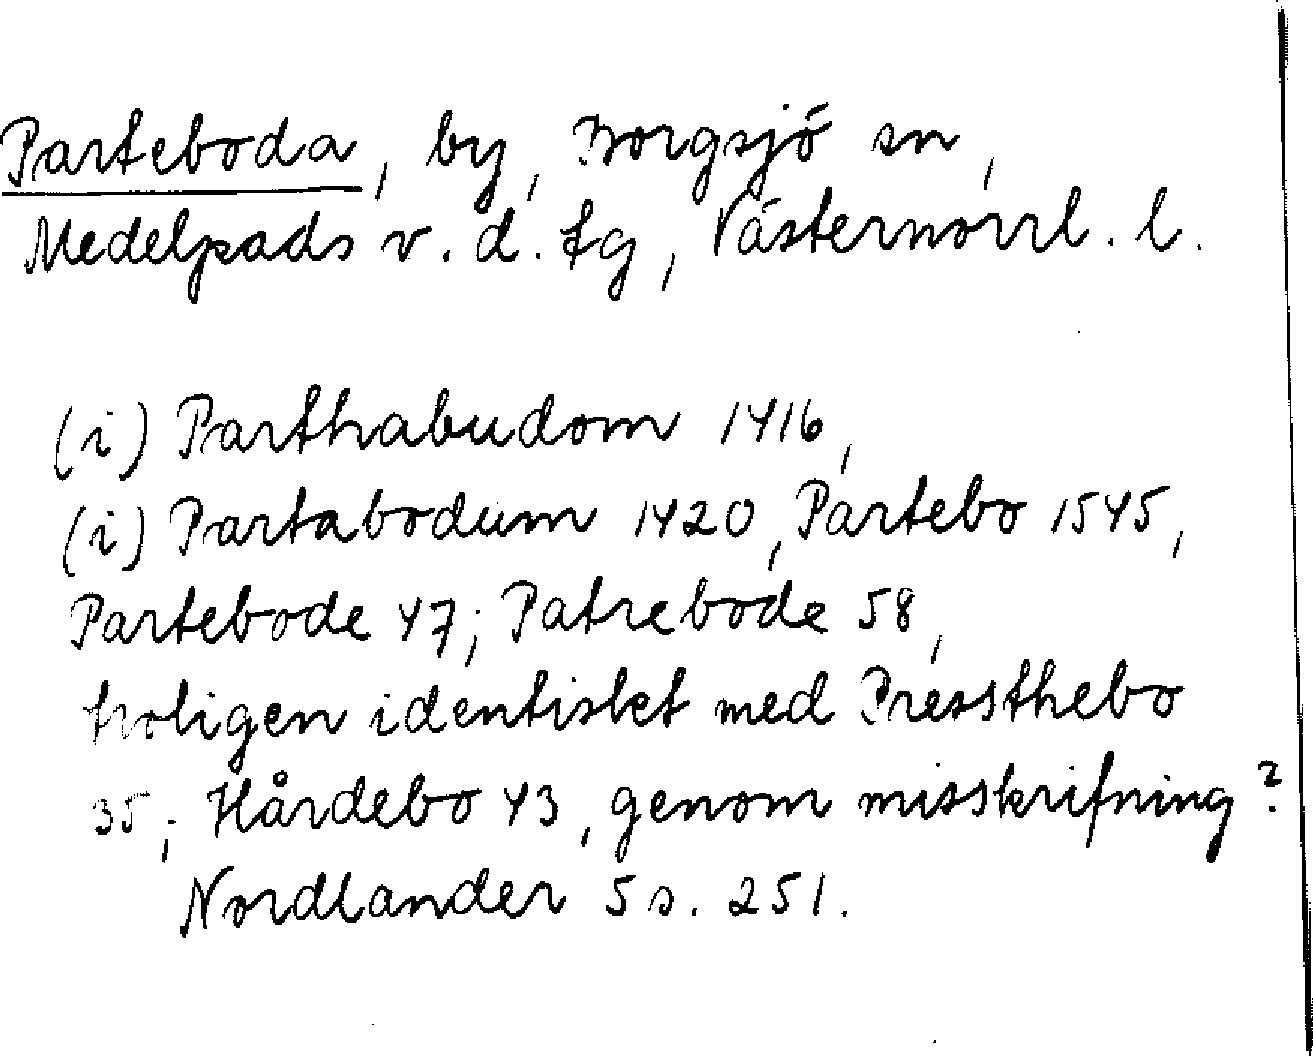 Parteboda, by, Borgsjö sn,
Medelpads v. d. tg, Västernorrl. l.
(i) Parthabudom 1416,
(i) Partabodum 1420, Partebo 1545,
Partebode 47; Patrebode 58,
troligen identiskt med Pressthebo
35; Hårdebo 43, genom misskrifning?
Nordlander 5 s. 251.